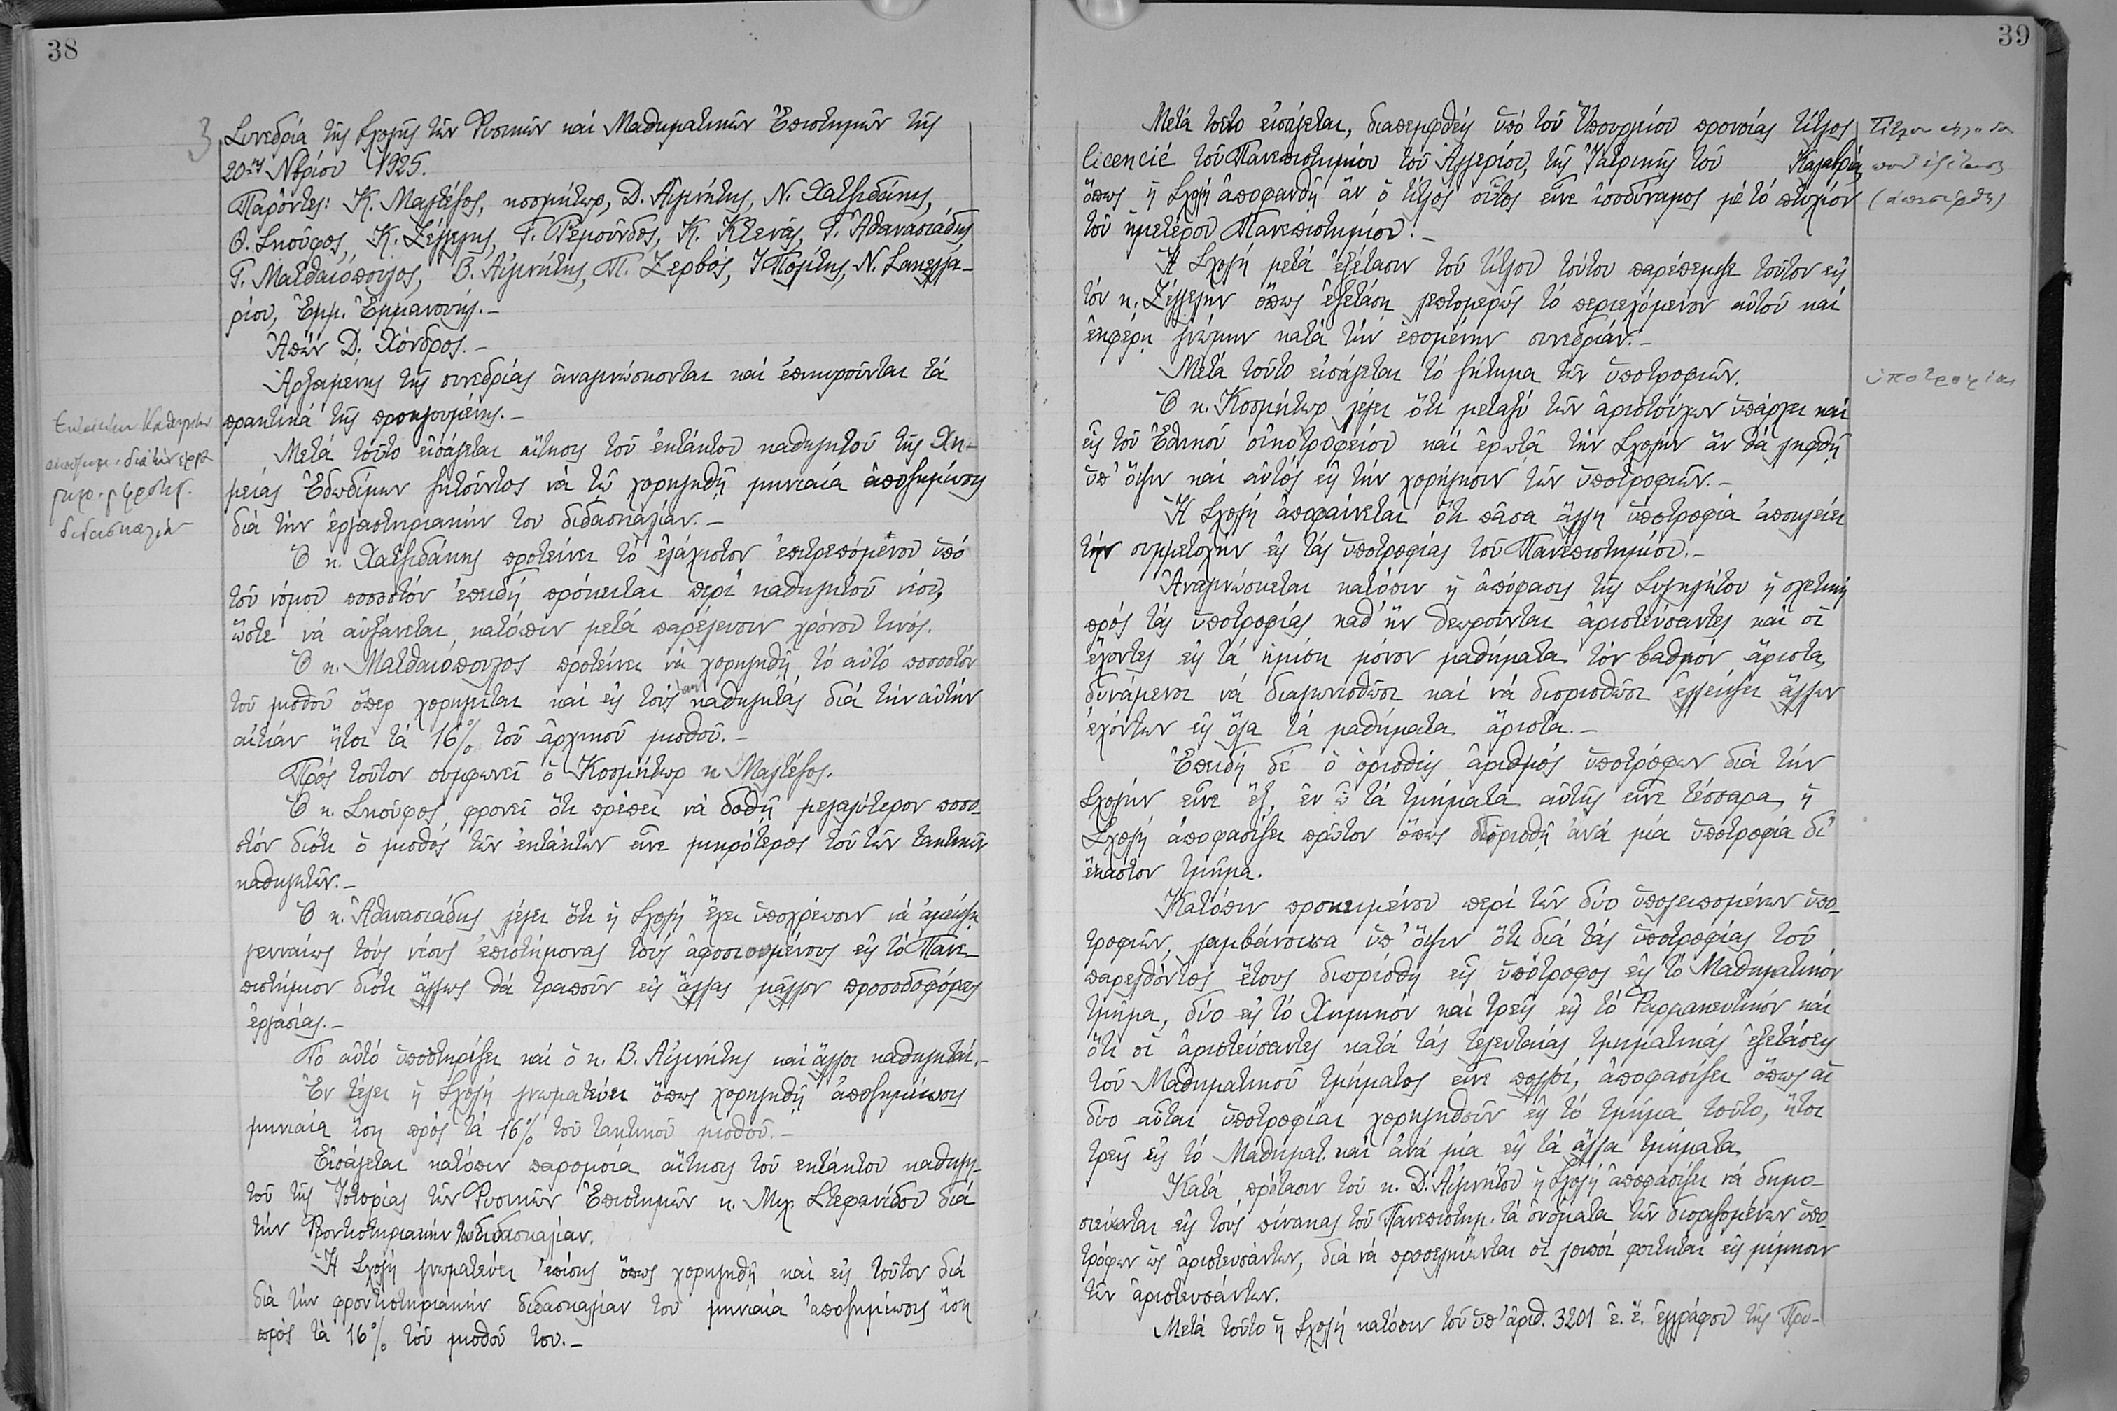 38
3
Συνεδρία τῆς Σχολῆς τῶν Φυσικῶν καί Μαθηματικῶν Ἐπιστημῶν τῆς
20ης Νβρίου 1925.
Παρόντες: Κ. Μαλτέζος, κοσμήτωρ, Δ. Αἰγινήτης, Ν. Χατζιδάκης,
Θ. Σκούφος, Κ. Ζέγγελης, Γ. Ρεμοῦνδος, Κ. Κτενᾶς, Γ. Ἀθανασιάδης
Γ. Ματθαιόπουλος, Β. Αἰγινήτης, Π. Ζερβός, Ἰ Πολίτης, Ν. Σακελλα-
ρίου, Ἐμμ. Ἐμμανουήλ.-
Ἀπών Δ. Χόνδρος.-
Ἀρξαμένης τῆς συνεδρίας ἀναγινώσκονται καί ἐπικυροῦνται τά
πρακτικά τῆς προηγουμένης.-
Μετά τοῦτο εἰσάγεται αἴτησις τοῦ ἐκτάκτου καθηγητοῦ τῆς Χη-
μείας ζητοῦντος νά τῷ χορηγηθῇ μηνιαία ἀποζημίωσις
διά τήν ἐργαστηριακήν του διδασκαλίαν.-
Ὁ κ. Χατζιδάκης προτείνει τό ἐλάχιστον ἐπιτρεπόμενον ὑπό
τοῦ νόμου ποσοστόν ἐπειδή πρόκειται περί καθηγητοῦ νέου,
ὥστε νά αὐξάνεται κατόπιν μετά παρέλευσιν χρόνου τινός.
Ὁ κ. Ματθαιόπουλος προτείνει νά χορηγηθῇ τό αὐτό ποσοστόν
τοῦ μισθοῦ ὅπερ χορηγεῖται καί εἰς τούς καθηγητάς διά τήν αὐτήν
αἰτίαν ἤτοι τά 16% τοῦ ἀρχικοῦ μισθοῦ.-
Πρός τοῦτον συμφωνεῖ ὁ Κοσμήτωρ κ. Μαλτέζος.
Ὁ κ. Σκούφος φρονεῖ ὅτι πρέπει νά δοθῇ μεγαλύτερον ποσο-
στόν διότι ὁ μισθός τῶν ἐκτάκτων εἶνε μικρότερος τοῦ τῶν τακτικῶν
καθηγητῶν.-
Ὁ κ. Ἀθανασιάδης λέγει ὅτι ἡ Σχολή ἔχει ὑποχρέωσιν νά ἀμείψῃ
γενναίως τούς νέους ἐπιστήμονας τούς ἀφοσιουμένους εἰς τό Πανε-
πιστήμιον διότι ἄλλως θά τραποῦν εἰς ἄλλας μᾶλλον προσοδοφόρους
ἐργασίας.-
Τό αὐτό ὑποστηρίζει καί ὁ κ. Β. Αἰγινήτης καί ἄλλοι καθηγηταί.-
Ἐν τέλει ἡ Σχολή γνωματεύει ὅπως χορηγηθῇ ἀποζημίωσις
μηνιαία ἴση πρός τά 16% τοῦ τακτικοῦ μισθοῦ.-
Εἰσάγεται κατόπιν παρομοία αἴτησις τοῦ ἐκτάκτου καθηγη-
τοῦ τῆς Ἱστορίας τῶν Φυσικῶν Ἐπιστημῶν κ. Μιχ. Στεφανίδου διά
τήν Φροντιστηριακήν του διδασκαλίαν.
Ἡ Σχολή γνωματεύει ἐπίσης ὅπως χορηγηθῇ καί εἰς τοῦτον διά
διά τήν φροντιστηριακήν διδασκαλίαν του μηνιαία ἀποζημίωσις ἴση
πρός τά 16% τοῦ μισθοῦ του.-
διδασκαλίαν
39
Μετά τοῦτο εἰσάγεται, διαπεμφθείς ὑπό τοῦ Ὑπουργείου προνοίας τίτλος
licencié τοῦ Πανεπιστημίου τοῦ Ἀλγερίου, τῆς Ἰατρικῆς τοῦ
ὅπως ἡ Σχολή ἀποφανθῇ ἄν ὁ τίτλος οὗτος εἶνε ἰσοδύναμος μέ τό πτυχίον
τοῦ ἡμετέρου Πανεπιστημίου.-
Ἡ Σχολή μετά ἐξέτασιν τοῦ τίτλου τούτου παρέπεμψε τοῦτον εἰς
τόν κ. Ζέγγελην ὅπως ἐξετάσῃ λεπτομερῶς τό περιεχόμενον αὐτοῦ καί
ἐκφέρῃ γνώμην κατά τήν ἑπομένην συνεδρίαν.-
Μετά τοῦτο εἰσάγεται τό ζήτημα τῶν ὑποτροφιῶν.
Ὁ κ. Κοσμήτωρ λέγει ὅτι μεταξύ τῶν ἀριστούχων ὑπάρχει καί
εἷς τοῦ Ἐθνικοῦ οἰκοτροφείου καί ἐρωτᾷ τήν Σχολήν ἄν θά ληφθῇ
ὑπ' ὄψιν καί αὐτός εἰς τήν χορήγησιν τῶν ὑποτροφιῶν.-
Ἡ Σχολή ἀποφαίνεται ὅτι πᾶσα ἄλλη ὑποτροφία ἀποκλείει
τήν συμμετοχήν εἰς τάς ὑποτροφίας τοῦ Πανεπιστημίου.-
Ἀναγινώσκεται κατόπιν ἡ ἀπόφασις τῆς Συγκλήτου ἡ σχετική
πρός τάς ὑποτροφίας καθ' ἥν θεωροῦνται ἀριστεύσαντες καί οἱ
ἔχοντες εἰς τά ἡμίση μόνον μαθήματα τόν βαθμόν ἄριστα,
δυνάμενοι νά διαγωνισθῶσι καί νά διορισθῶσι ἐλλείψει ἄλλων
ἐχόντων εἰς ὅλα τά μαθήματα ἄριστα.-
Ἐπειδή δέ ὁ ὁρισθείς ἀριθμός ὑποτρόφων διά τήν
Σχολήν εἶνε ἕξ, ἐν ᾧ τά τμήματα αὐτῆς εἶνε τέσσαρα, ἡ
Σχολή ἀποφασίζει πρῶτον ὅπως διορισθῇ ἀνά μία ὑποτροφία δι'
ἕκαστον τμῆμα.
Κατόπιν προκειμένου περί τῶν δύο ὑπολειπομένων ὑπο-
τροφιῶν, λαμβάνουσα ὑπ' ὄψιν ὅτι διά τάς ὑποτροφίας τοῦ
παρελθόντος ἔτους διωρίσθη εἷς ὑπότροφος εἰς τό Μαθηματικόν
τμῆμα, δύο εἰς τό Χημικόν καί τρεῖς εἰς τό Φαρμακευτικόν καί
ὅτι οἱ ἀριστεύσαντες κατά τάς τελευταίας τμηματικάς ἐξετάσεις
τοῦ Μαθηματικοῦ τμήματος εἶνε πολλοί, ἀποφασίζει ὅπως αἱ
δύο αὗται ὑποτροφίαι χορηγηθοῦν εἰς τό τμῆμα τοῦτο, ἤτοι
τρεῖς εἰς τό Μαθηματ. καί ἀνά μία εἰς τά ἄλλα τμήματα
Κατά πρότασιν τοῦ κ. Δ. Αἰγινήτου ἡ Σχολή ἀποφασίζει νά δημο-
σιεύωνται εἰς τούς πίνακας τοῦ Πανεπιστημ. τά ὀνόματα τῶν διοριζομένων ὑπο-
τρόφων ὡς ἀριστευσάντων, διά νά προσελκύωνται οἱ λοιποί φοιτηταί εἰς μίμησιν
τῶν ἀριστευσάντων.
Μετά τοῦτο ἡ Σχολή κατόπιν τοῦ ὑπ' ἀριθ. 3201 ἐ. ἔ. ἐγγράφου τῆς Πρυ-
ὑποτροφίας